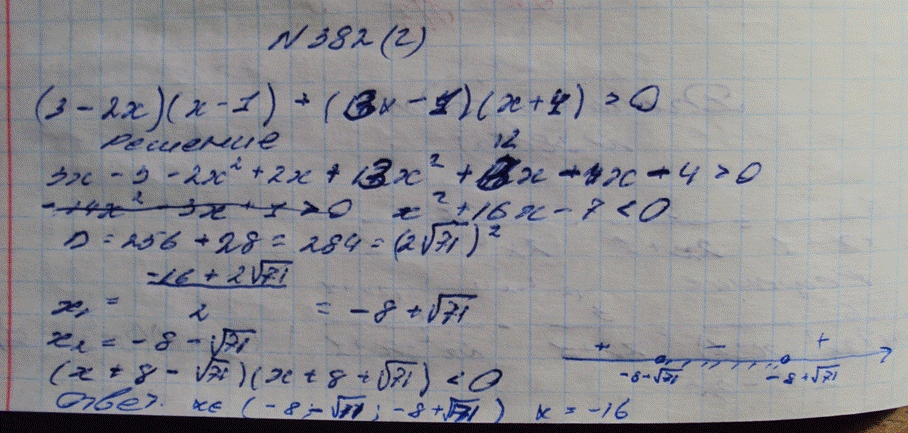 N 382 (2)
(3 - 2x)(x - 1) + (3x - 1)(x + 4) > 0
Решение
3x - 3 - 2x² + 2x + 3x² + 12x - x - 4 > 0
- 14x² - 3x + 1 > 0 x² + 16x - 7 < 0
D = 256 + 28 = 284 = (2√71)²
x₁ = (-16 + 2√71) / 2 = -8 + √71
x₂ = -8 - √71
(x + 8 - √71)(x + 8 + √71) < 0
+ - +
-8-√71 -8+√71
Ответ. x∈ (-8-√71; -8+√71) x = -16